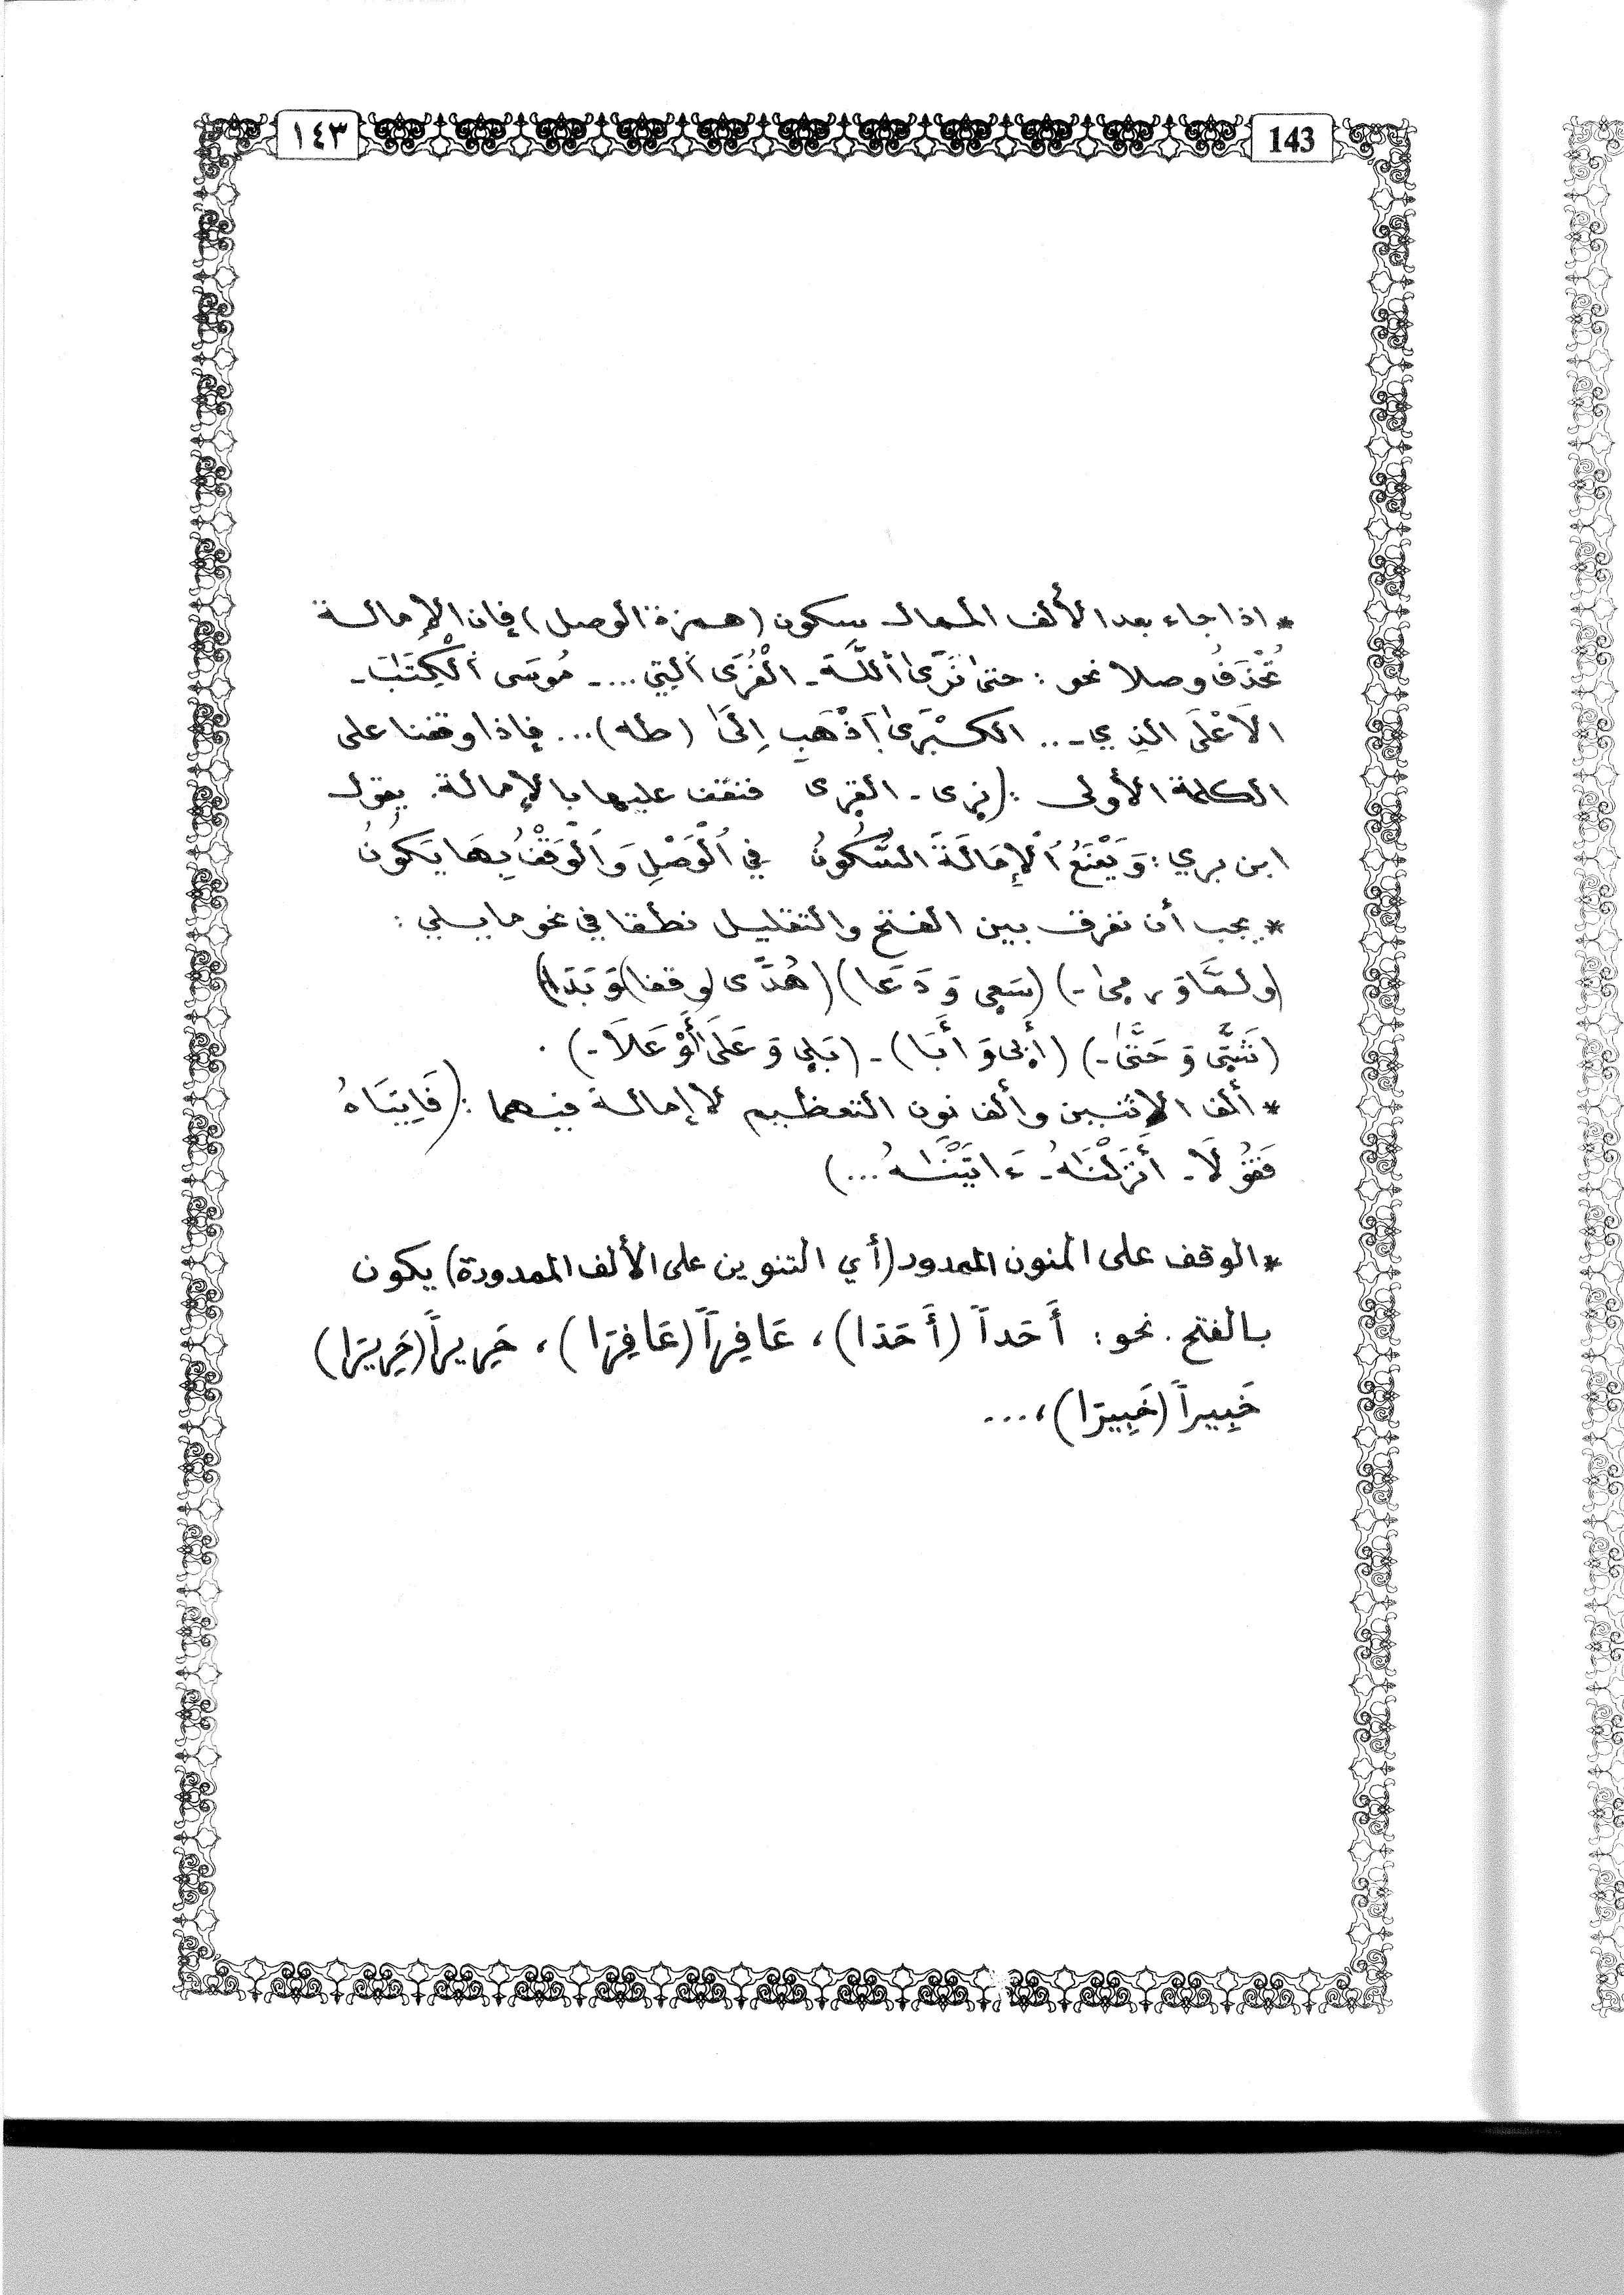 ١٤٣
143
* اذا جاء بعد الألف الممال سكون (همزة الوصل) فإن الإمالة
تُحْذَفُ وصلا نحو : حتىٰ نَرَى ٱللَّهَ - الْقُرَى ٱلتِي ... - مُوسَى ٱلْكِتَٰبَ -
الَاعْلَى الذِي - .. الكُبْرَى ٱذْهَبِ اِلَىٰ (طه) ... فإذا وقفنا على
الكلمة الأولى : (نرى - القرى فنقف عليها بالإمالة. يقول
ابن بري : وَيَمْنَعُ ٱلْإِمَالَةَ السُّكُونُ في ٱلْوَصْلِ وَٱلْوَقْفُ بِهَا يَكُونُ
* يجب أن نفرق بين الفتح والتقليل نطقا في نحو ما يلي :
(ولمَّا وَرمىٰ -) (سَعِى وَ دَعَا) (هُدًى (وقفا) وَبَدَا)
(شَتَّى وَ حَتَّىٰ -) (أَبى وَ أَبَا) - (بَلِى وَ عَلَى أَوْ عَلَا -) .
* ألف الاثنين وألف نون التعظيم لا إمالة فيهما : (فَاتِيَاهُ
فَقُولَا - أَنزَلْنَٰهُ - ءَاتَيْنَٰهُ ...)
* الوقف على المنون الممدود (أي التنوين على الألف الممدودة) يكون
بالفتح . نحو : أَحَداً (أَحَدَا) ، عَافِراً (عَافِرَا) ، حَرِيراً (حَرِيرَا)
خَبِيراً (خَبِيرَا) ، ...